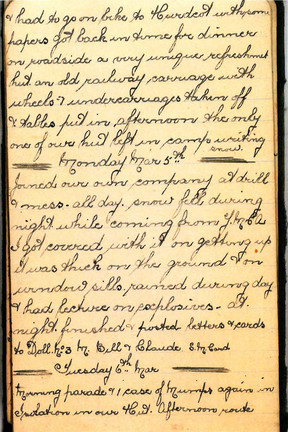 & had to go on bike to Hurdcot with some
papers got back in time for dinner
on roadside a very unique refreshmet
hut an old railway carriage with
wheels & undercarriages taken off
& tables put in, afternoon the only
one of our hut left in camp writing
snow
Monday Mar 5th
Joined our own company at drill
& mess - all day. snow fell during
night while coming from Y.M.C.A
I got covered with it on getting up
it was thick on the ground & on
window sills, rained during day
& had lecture on explosives - at
night finished & posted letters & cards
to Doll. No 3 M. Bill & Claude. E. M Cord
Tuesday 6th Mar
Morning parade & 1 case of Mumps again in
Isolation in our Hut. Afternoon route